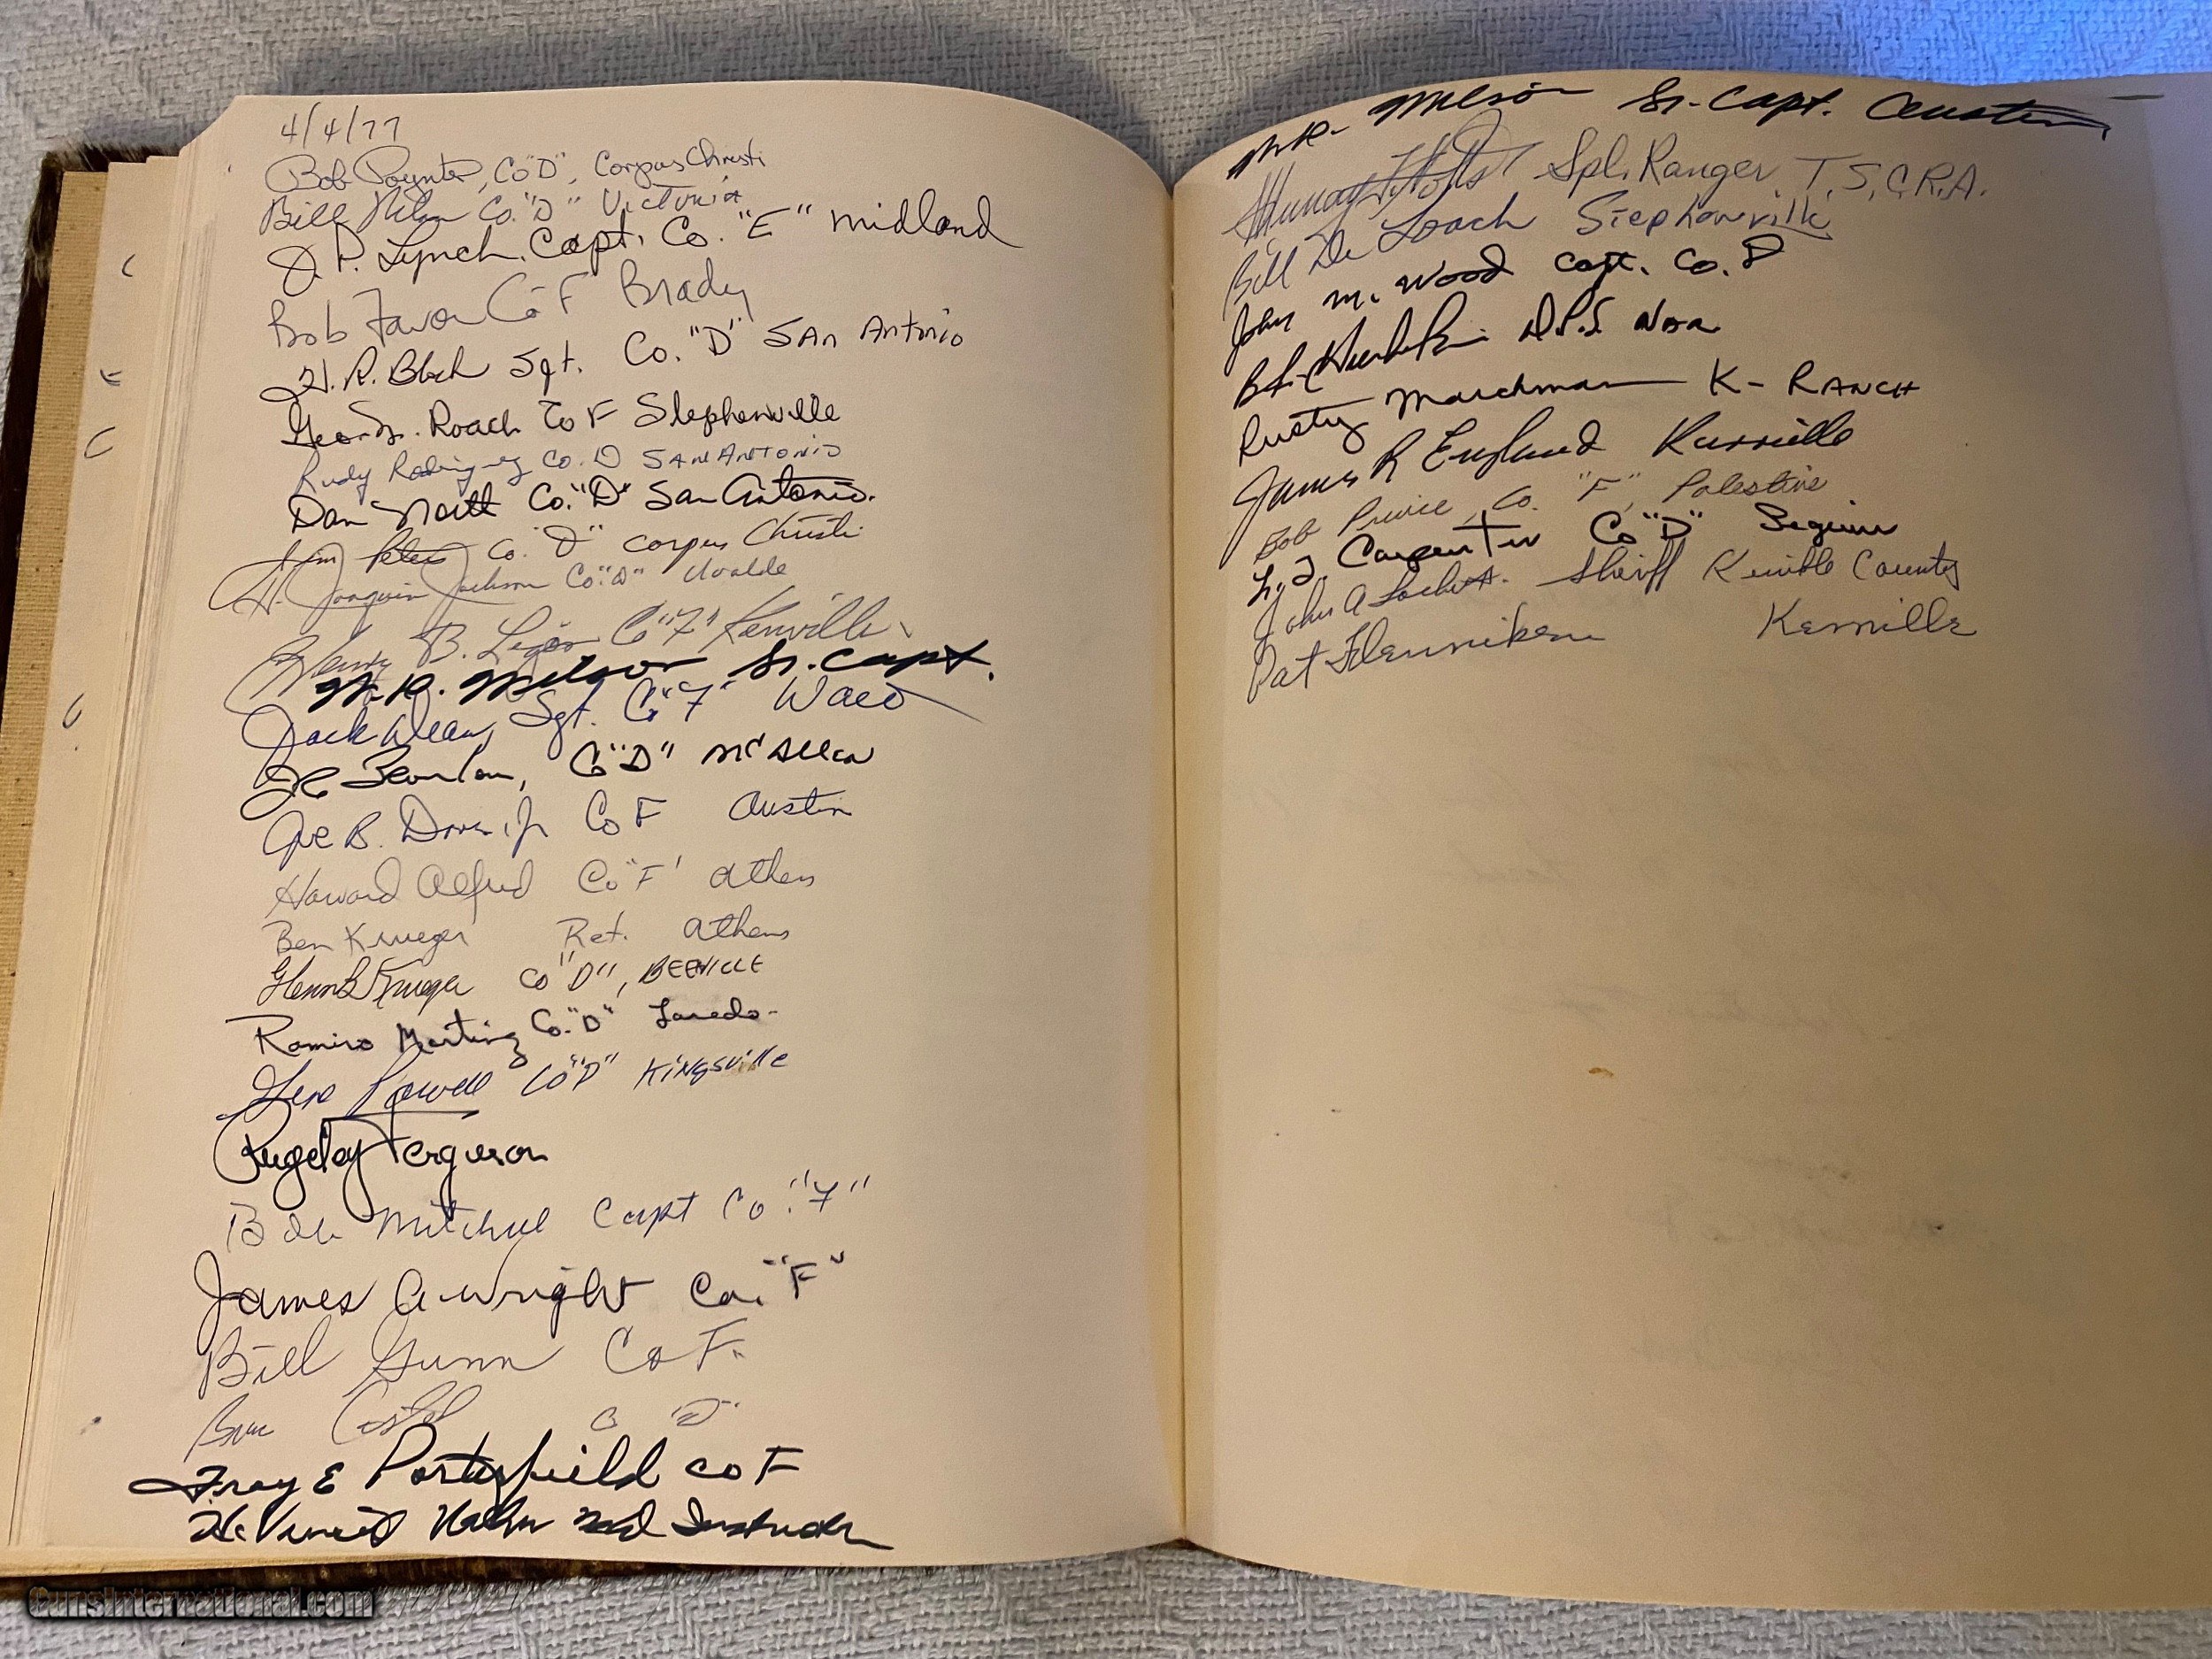 4/4/77
Bob Poynter, Co "D", Corpus Christi
Bill Co. "D" Victoria
J. P. Lynch. Capt. Co. "E" midland
Bob Favor Co F Brady
H. R. Block Sgt. Co. "D" San Antonio
Roach Co F Stephenville
Rudy Rodriguez Co. D San Antonio
Dan North Co. "D" San Antonio.
Jim Peters Co. "D" Corpus Christi
H. Joaquin Jackson Co. "D" Uvalde
Henry B. Ligon Co "F" Kerrville
W. R. Wilson Sr. Capt.
Jack Dean, Sgt. Co "F" Waco
Co "D" McAllen
Joe B. Davis, Jr Co F Austin
Howard Alfred Co "F" Athens
Ben Krueger Ret. Athens
Glenn B Krueger Co "D", Beeville
Ramiro Martinez Co. "D" Laredo.
Gene Powell Co "D" Kingsville
Pugeley Ferguson
Bob Mitchell Capt Co. "F"
James A. Wright Co. "F"
Bill Gunn Co F.
Bruce Casteel Co "D"
Troy E Porterfield Co F
H. Vincent Hahn
W. R. Wilson Sr. Capt. Austin
Spl. Ranger T.S.C.R.A.
Bill De Loach Stephenville
John M. Wood Capt. Co. D
D.P.S.
Rusty Marchman K- Ranch
James R England Kerrville
Bob Prince, Co. "F", Palestine
Carpenter Co "D" Seguin
John A Sheriff Kimble County
Pat Flenniken Kerrville
GunsInternational.com